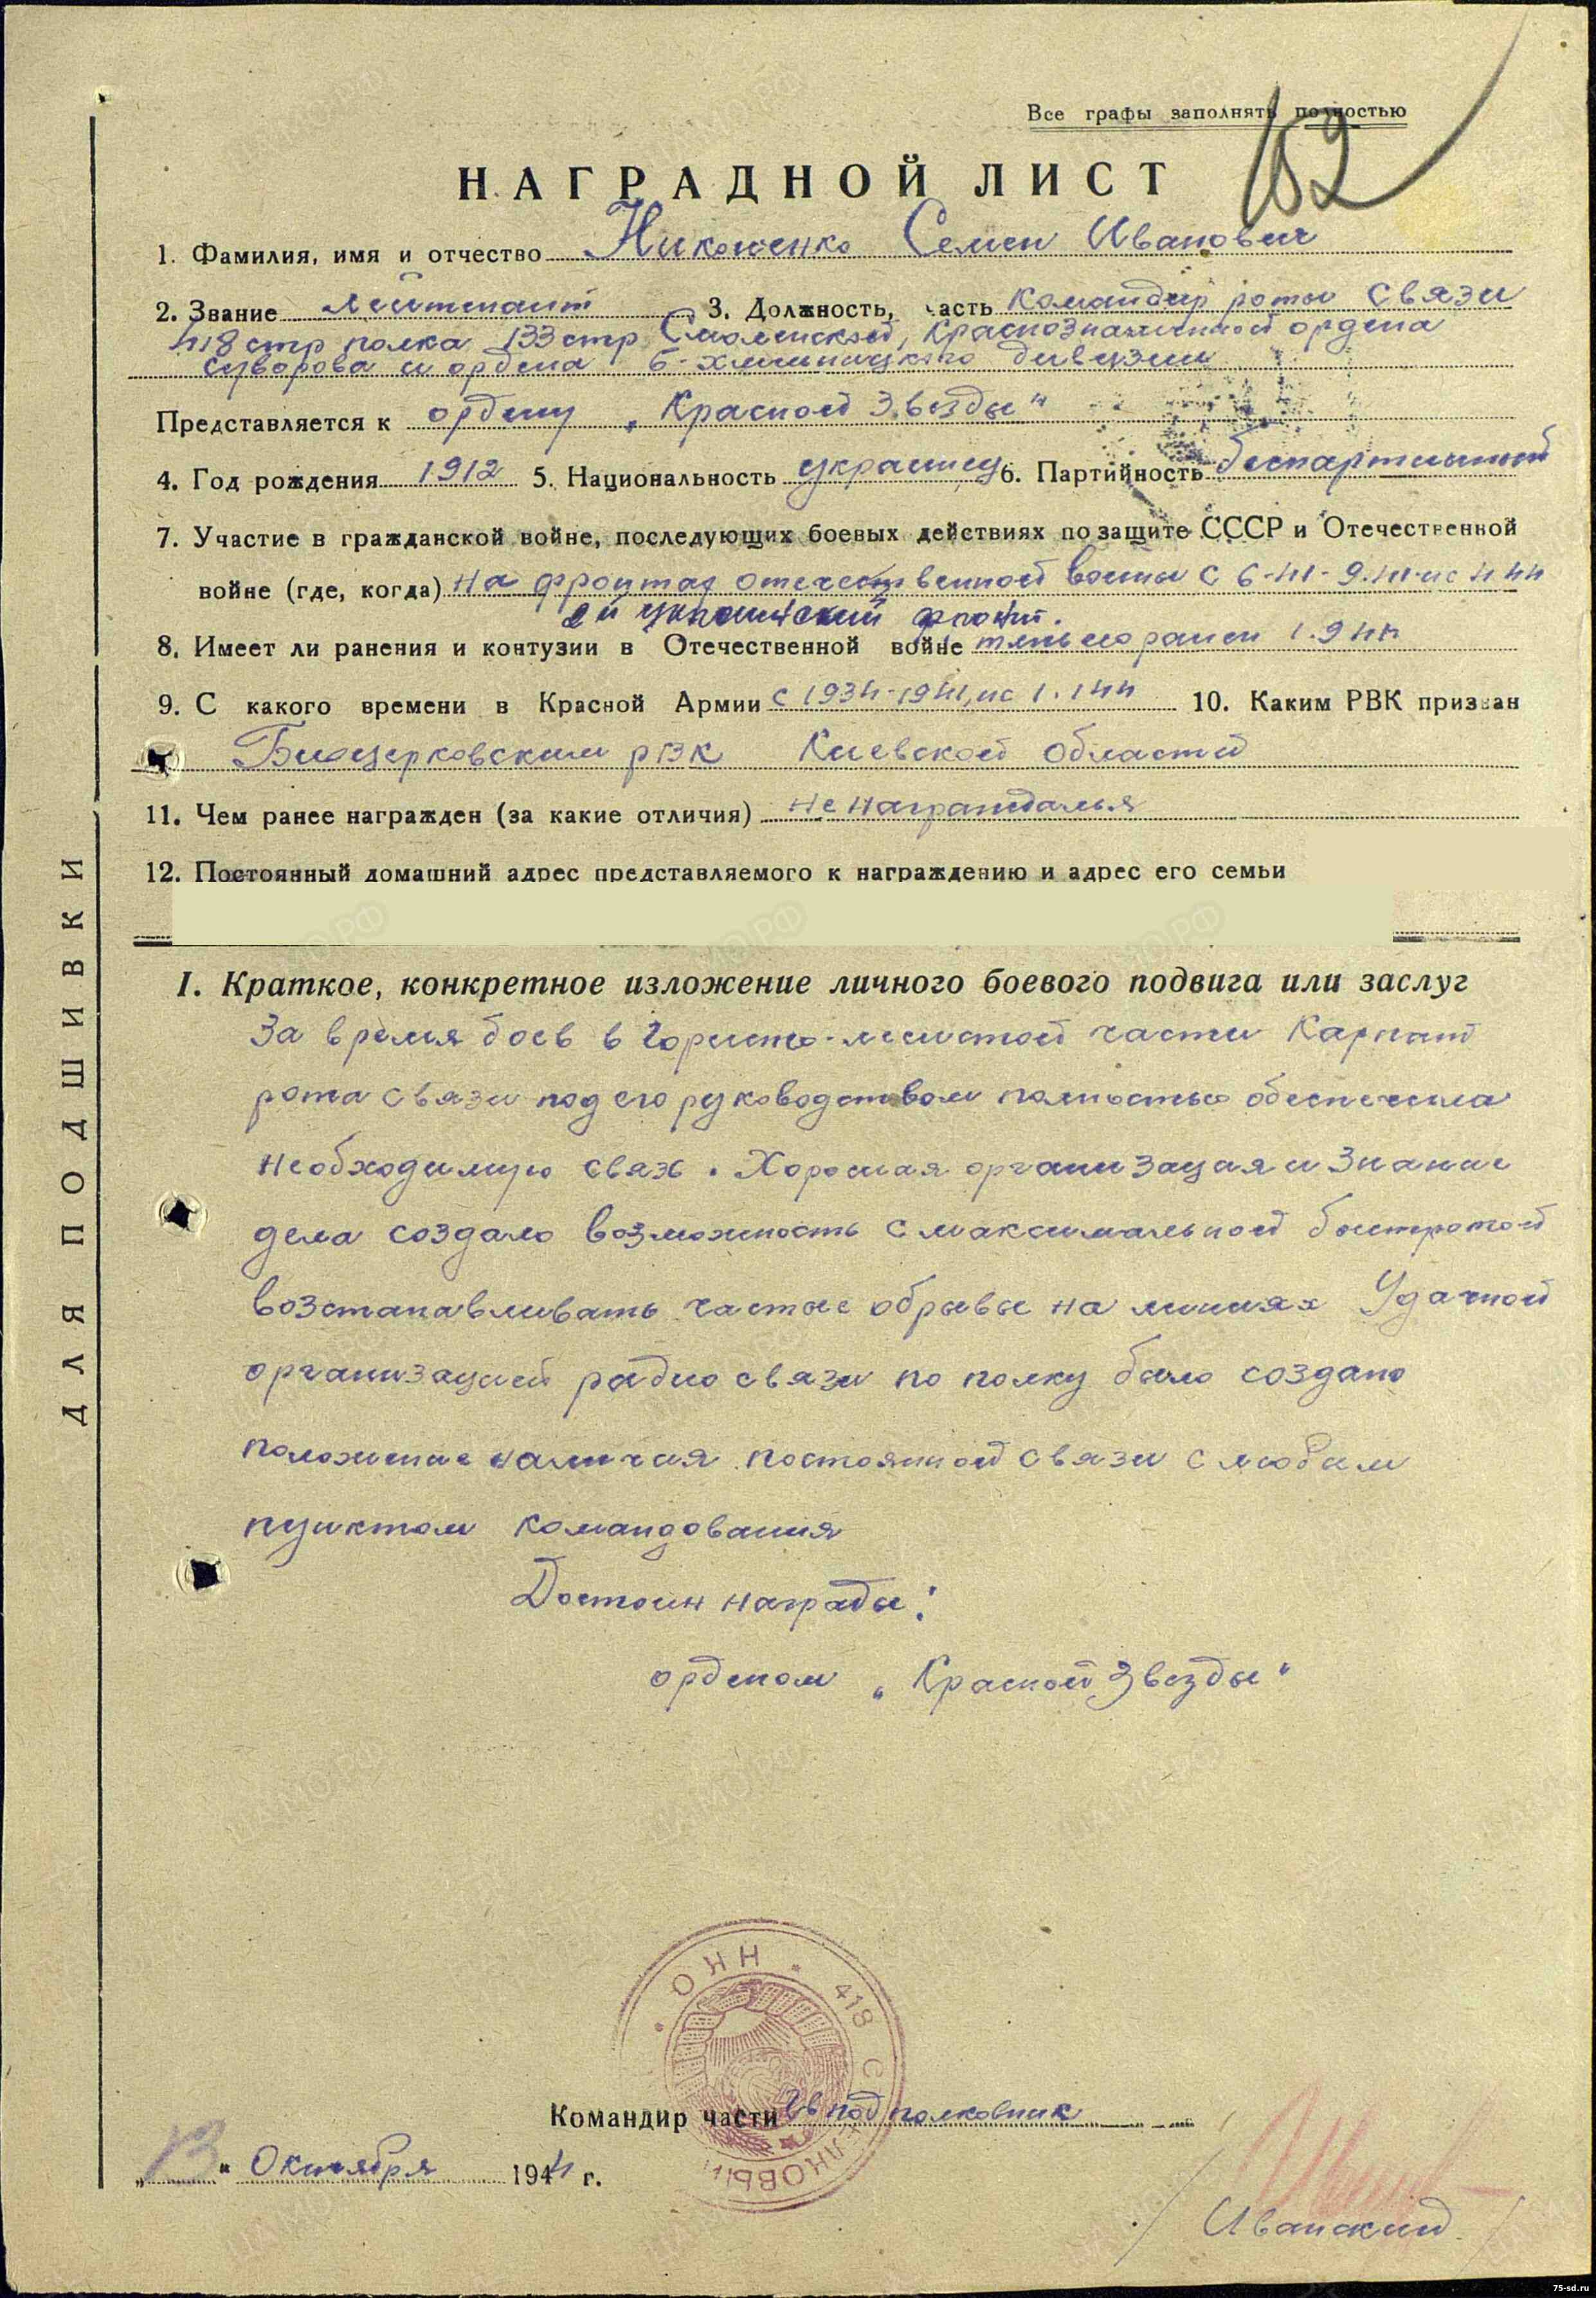 Все графы заполнять полностью
152
НАГРАДНОЙ ЛИСТ
1. Фамилия, имя и отчество Никоненко Семен Иванович
2. Звание лейтенант 3. Должность, часть Командир роты связи
418 стр полка 133 стр Смоленской, Краснознаменной ордена
Суворова и ордена Б-Хмельницкого дивизии
Представляется к ордену „Красной Звезды"
4. Год рождения 1912 5. Национальность украинец 6. Партийность беспартийный
7. Участие в гражданской войне, последующих боевых действиях по защите СССР и Отечественной
войне (где, когда) На фронтах отечественной войны с 6-41-9.41 и с 4 44
2й украинский фронт.
8. Имеет ли ранения и контузии в Отечественной войне тяжело ранен 1.9 44
9. С какого времени в Красной Армии с 1934-1941, и с 1.1 44 10. Каким РВК призван
Белоцерковским РВК Киевской области
11. Чем ранее награжден (за какие отличия) не награждался
12. Постоянный домашний адрес представляемого к награждению и адрес его семьи
I. Краткое, конкретное изложение личного боевого подвига или заслуг
За время боев в Гористо-лесистой части Карпат
рота связи под его руководством полностью обеспечила
необходимую связь. Хорошая организация и знание
дела создало возможность с максимальной быстротой
возстанавливать частые обрывы на линиях Удачной
организацией радио связи по полку было создано
положение наличия постоянной связи с любым
пунктом командования
Достоин награды:
орденом „Красной Звезды"
ДЛЯ ПОДШИВКИ
НКО * 418 СТРЕЛКОВЫЙ
Командир части Гв подполковник
„13" Октября 1944 г.
/Иванский/
75-sd.ru